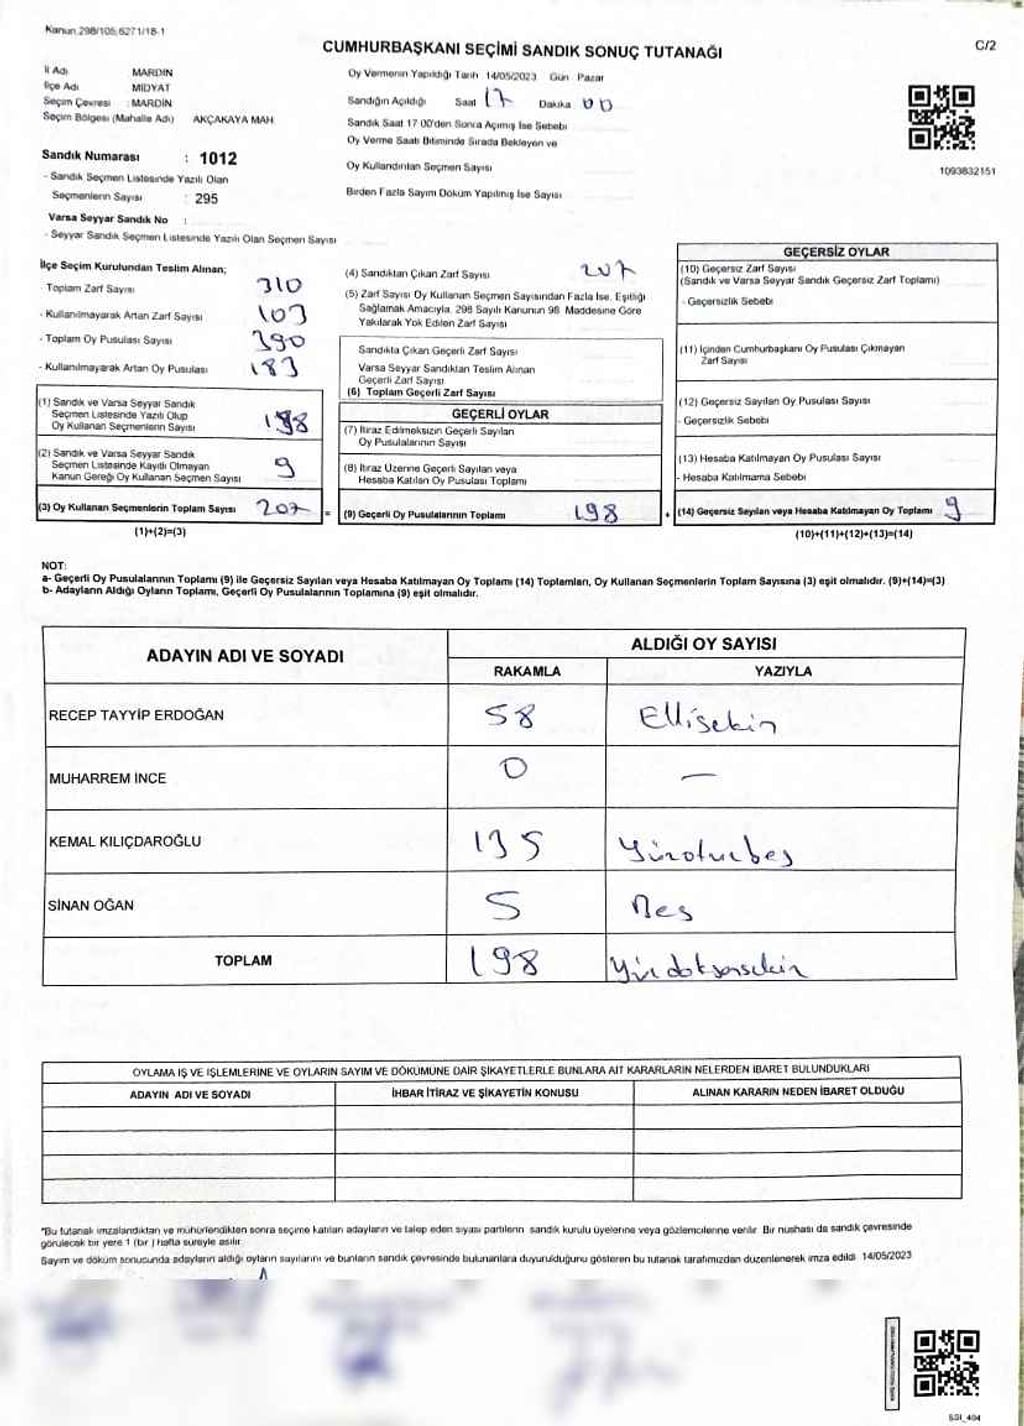 Kanun.298/105,6271/18-1
CUMHURBAŞKANI SEÇİMİ SANDIK SONUÇ TUTANAĞI
C/2
İl Adı MARDİN
İlçe Adı MİDYAT
Seçim Çevresi : MARDİN
Seçim Bölgesi (Mahalle Adı) AKÇAKAYA MAH.
Oy Vermenin Yapıldığı Tarih 14/05/2023 Gün Pazar
Sandığın Açıldığı Saat 17 Dakika 00
Sandık Saat 17 00'den Sonra Açımış İse Sebebi
Oy Verme Saati Bitiminde Sırada Bekleyen ve
Oy Kullandırılan Seçmen Sayısı
Birden Fazla Sayım Döküm Yapılmış İse Sayısı
1093832151
Sandık Numarası : 1012
- Sandık Seçmen Listesinde Yazılı Olan
Seçmenlerin Sayısı : 295
Varsa Seyyar Sandık No :
- Seyyar Sandık Seçmen Listesinde Yazılı Olan Seçmen Sayısı
İlçe Seçim Kurulundan Teslim Alınan;
- Toplam Zarf Sayısı 310
- Kullanılmayarak Artan Zarf Sayısı 103
- Toplam Oy Pusulası Sayısı 390
- Kullanılmayarak Artan Oy Pusulası 183
(1) Sandık ve Varsa Seyyar Sandık
Seçmen Listesinde Yazılı Olup
Oy Kullanan Seçmenlerin Sayısı 198
(2) Sandık ve Varsa Seyyar Sandık
Seçmen Listesinde Kayıtlı Olmayan
Kanun Gereği Oy Kullanan Seçmen Sayısı 9
(3) Oy Kullanan Seçmenlerin Toplam Sayısı 207 =
(1)+(2)=(3)
(4) Sandıktan Çıkan Zarf Sayısı 207
(5) Zarf Sayısı Oy Kullanan Seçmen Sayısından Fazla İse, Eşitliği
Sağlamak Amacıyla, 298 Sayılı Kanunun 98. Maddesine Göre
Yakılarak Yok Edilen Zarf Sayısı
Sandıkta Çıkan Geçerli Zarf Sayısı
Varsa Seyyar Sandıktan Teslim Alınan
Geçerli Zarf Sayısı
(6) Toplam Geçerli Zarf Sayısı
GEÇERLİ OYLAR
(7) İtiraz Edilmeksizin Geçerli Sayılan
Oy Pusulalarının Sayısı
(8) İtiraz Üzerine Geçerli Sayılan veya
Hesaba Katılan Oy Pusulası Toplamı
(9) Geçerli Oy Pusulalarının Toplamı 198 +
GEÇERSİZ OYLAR
(10) Geçersiz Zarf Sayısı
(Sandık ve Varsa Seyyar Sandık Geçersiz Zarf Toplamı)
- Geçersizlik Sebebi
(11) İçinden Cumhurbaşkanı Oy Pusulası Çıkmayan
Zarf Sayısı
(12) Geçersiz Sayılan Oy Pusulası Sayısı
- Geçersizlik Sebebi
(13) Hesaba Katılmayan Oy Pusulası Sayısı
- Hesaba Katılmama Sebebi
(14) Geçersiz Sayılan veya Hesaba Katılmayan Oy Toplamı 9
(10)+(11)+(12)+(13)=(14)
NOT:
a- Geçerli Oy Pusulalarının Toplamı (9) ile Geçersiz Sayılan veya Hesaba Katılmayan Oy Toplamı (14) Toplamları, Oy Kullanan Seçmenlerin Toplam Sayısına (3) eşit olmalıdır. (9)+(14)=(3)
b- Adayların Aldığı Oyların Toplamı, Geçerli Oy Pusulalarının Toplamına (9) eşit olmalıdır.
ADAYIN ADI VE SOYADI
ALDIĞI OY SAYISI
RAKAMLA YAZIYLA
RECEP TAYYİP ERDOĞAN 58 Ellisekin
MUHARREM İNCE 0 —
KEMAL KILIÇDAROĞLU 135 Yüzotuzbeş
SİNAN OĞAN 5 Beş
TOPLAM 198 Yüzdoksansekin
OYLAMA İŞ VE İŞLEMLERİNE VE OYLARIN SAYIM VE DÖKÜMÜNE DAİR ŞİKAYETLERLE BUNLARA AİT KARARLARIN NELERDEN İBARET BULUNDUKLARI
ADAYIN ADI VE SOYADI İHBAR İTİRAZ VE ŞİKAYETİN KONUSU ALINAN KARARIN NEDEN İBARET OLDUĞU
*Bu tutanak imzalandıktan ve mühürlendikten sonra seçime katılan adayların ve talep eden siyasi partilerin sandık kurulu üyelerine veya gözlemcilerine verilir. Bir nushası da sandık çevresinde
görülecek bir yere 1 (bir ) hafta süreyle asılır.
Sayım ve döküm sonucunda adayların aldığı oyların sayılarını ve bunların sandık çevresinde bulunanlara duyurulduğunu gösteren bu tutanak tarafımızdan düzenlenerek imza edildi 14/05/2023
SSI_404